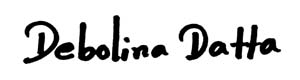 Debolina Datta